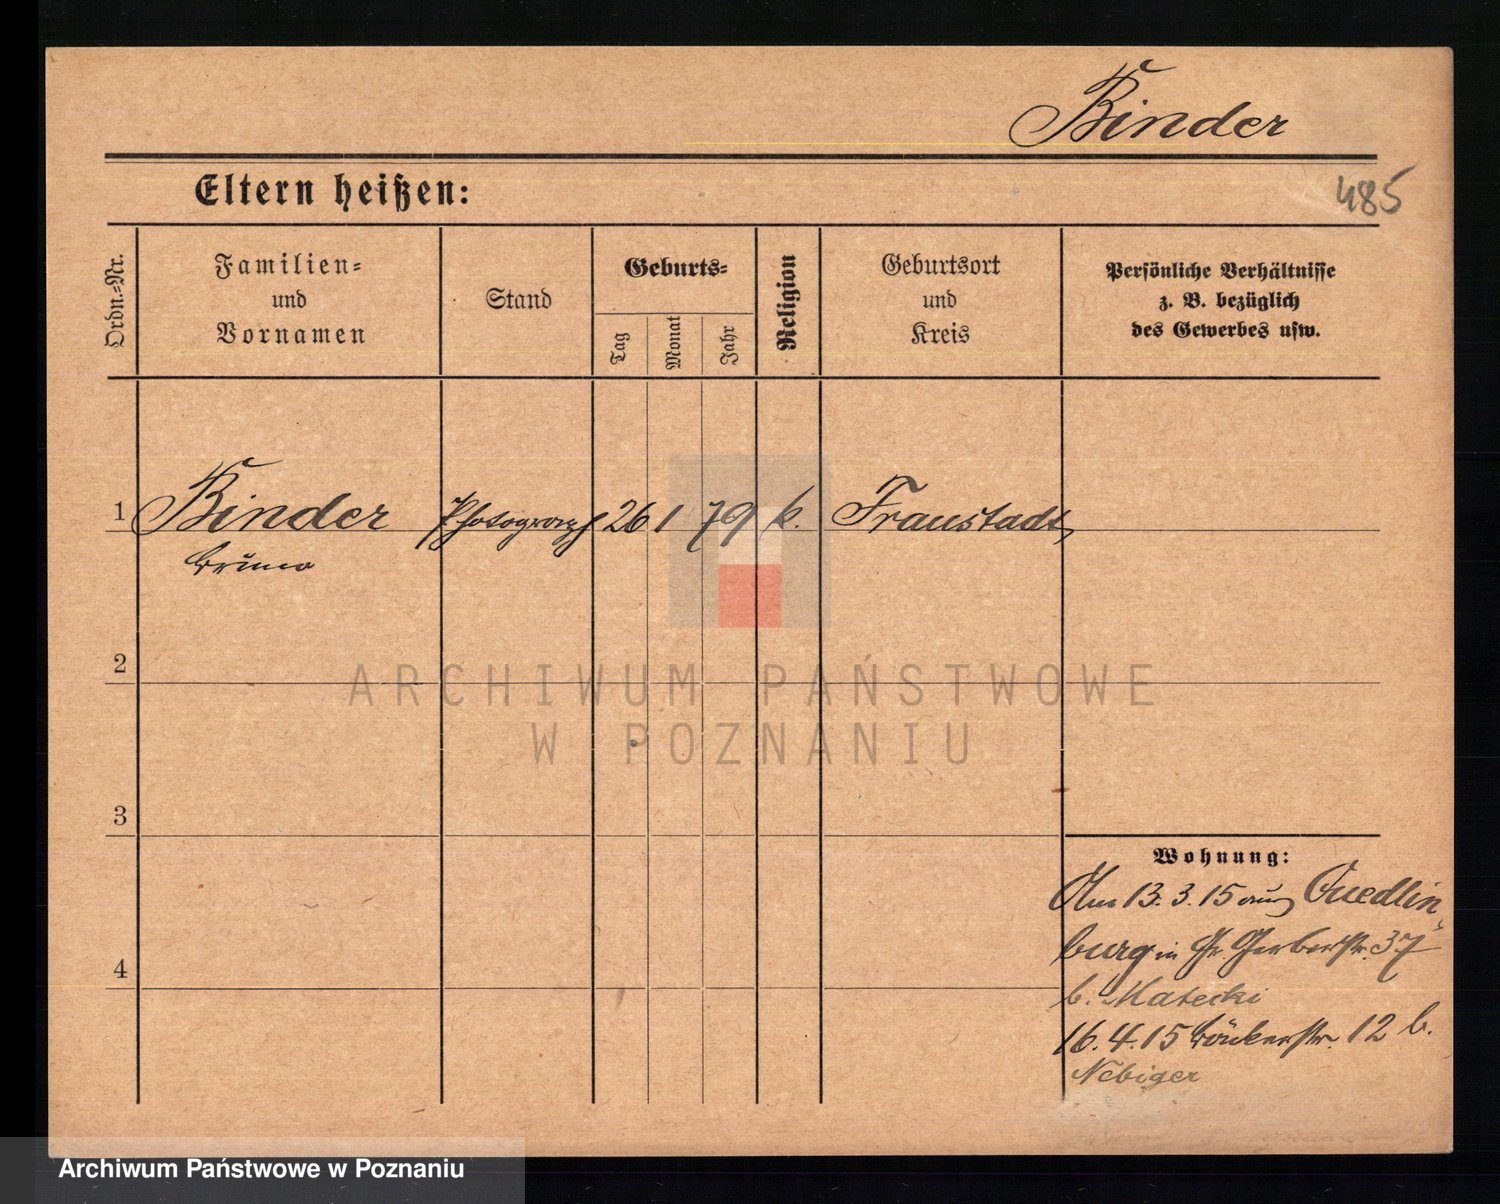 Binder
Eltern heißen:
485
Ordn.-Nr.
Familien-
und
Vornamen
Stand
Geburts-
Tag
Monat
Jahr
Religion
Geburtsort
und
Kreis
Persönliche Verhältnisse
z. B. bezüglich
des Gewerbes usw.
1 Binder Photograph 26 1 79 k. Fraustadt
Bruno
2
3
4
Wohnung:
Am 13. 3. 15 aus Quedlin-
burg in Gr. Gerberstr. 37
b. Matecki
16. 4. 15 12 b.
Nebiger
ARCHIWUM PAŃSTWOWE
W POZNANIU
Archiwum Państwowe w Poznaniu